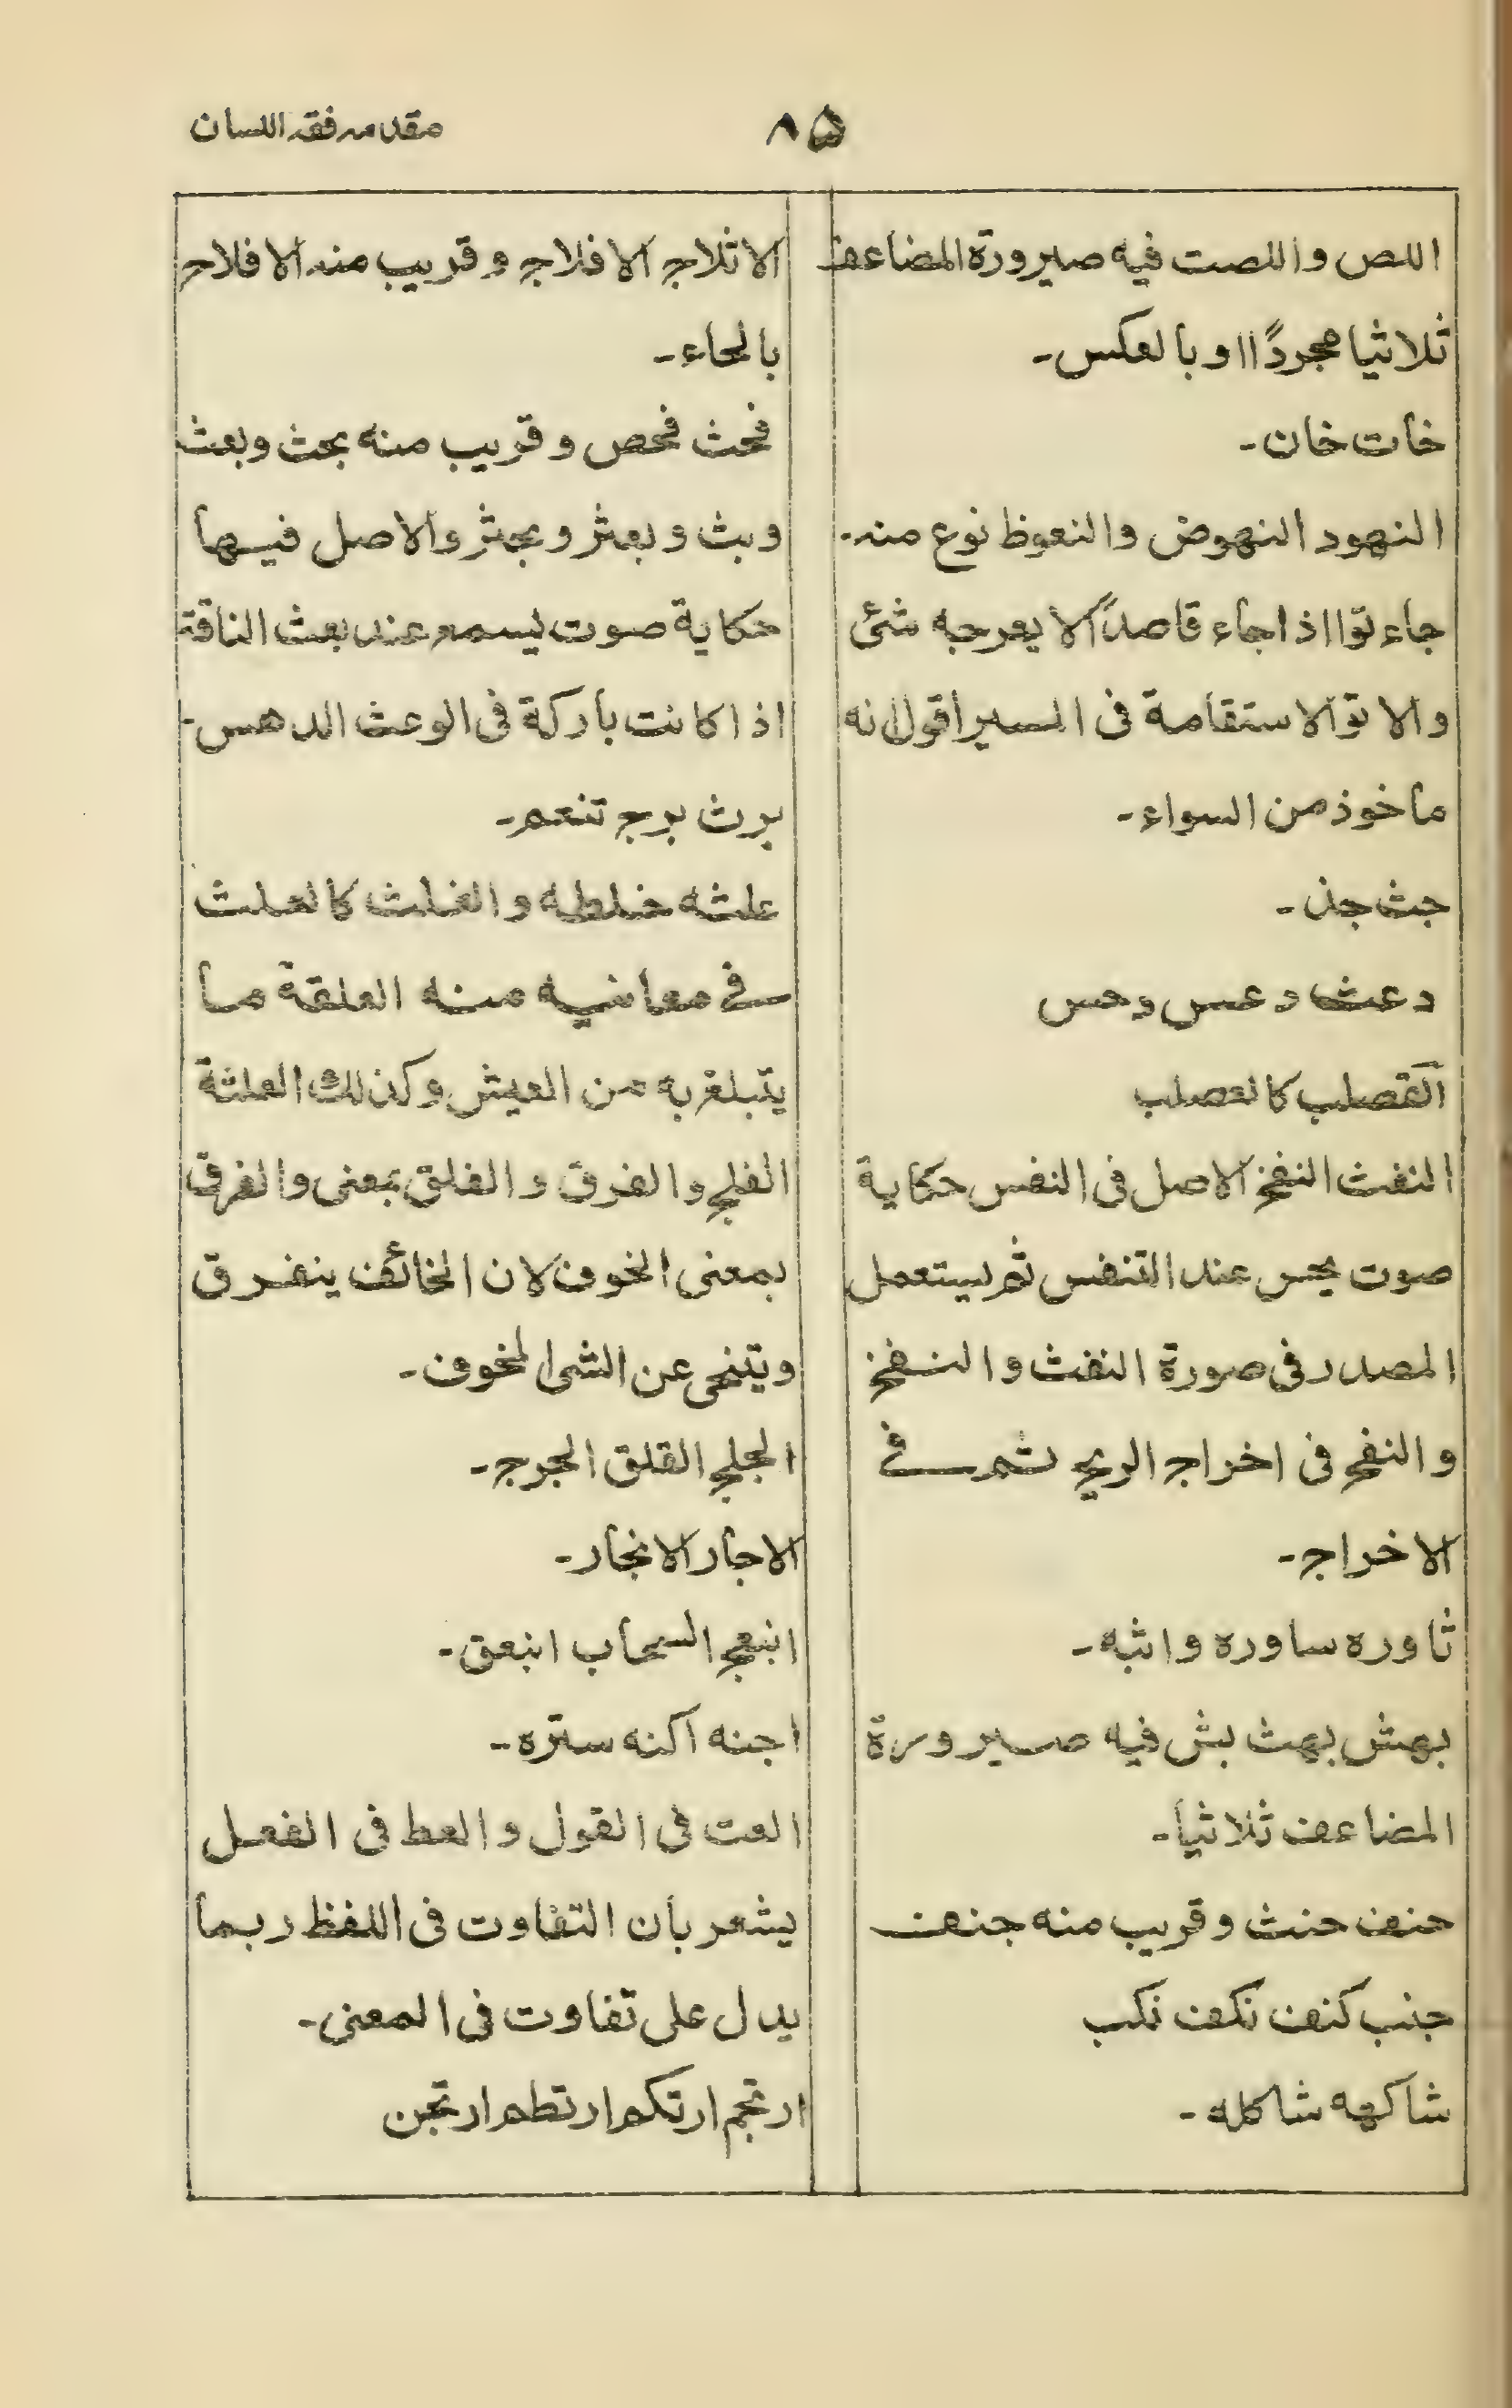 ٨٥
مقدمه فقه اللسان
اللص واللصت فيه صيرورة المضاعف
ثلاثيا مجردًا او بالعكس-
خات خان-
النهود النهوض والنعوظ نوع منه-
جاء توّا اذا جاء قاصداً لا يعرجه شئ
والاتو الاستقامة فى السير اقول انه
ماخوذ من السواء-
جث جذ-
دعث دعس دحس
القصلب كالعصلب
النفث النفخ الاصل فى النفس حكاية
صوت يحس عند التنفس ثم يستعمل
المصدر فى صورة النفث والنفخ
والنفح فى اخراج الريح ثم فى
الاخراج-
ثاوره ساوره واثبه-
بهش بهث بش فيه صيرورة
المضاعف ثلاثياً-
حنف حنث وقريب منه جنف
جنب كنف نكف نكب
شاكهه شاكله-
الاثلاج الافلاج وقريب منه الافلاح
بالحاء-
فحث فحص وقريب منه بحث وبعث
وبث وبعثر وبحثر والاصل فيها
حكاية صوت يسمع عند بعث الناقة
اذا كانت باركة فى الوعث الدهس-
برث برج تنعم-
علثه خلطه والغلث كالعلث
فى معانيه منه العلقة ما
يتبلغ به من العيش وكذلك العلثة
الفلج والفرق والفلق بمعنى والفرق
بمعنى الخوف لان الخائف ينفرق
ويتنحى عن الشئ المخوف-
الجلج القلق الجرج-
الاجار الانجار-
انبعج السحاب انبعق-
اجنه اكنه ستره-
العت فى القول والعط فى الفعل
يشعر بان التفاوت فى اللفظ ربما
يدل على تفاوت فى المعنى-
ارتجم ارتكم ارتطم ارتجن